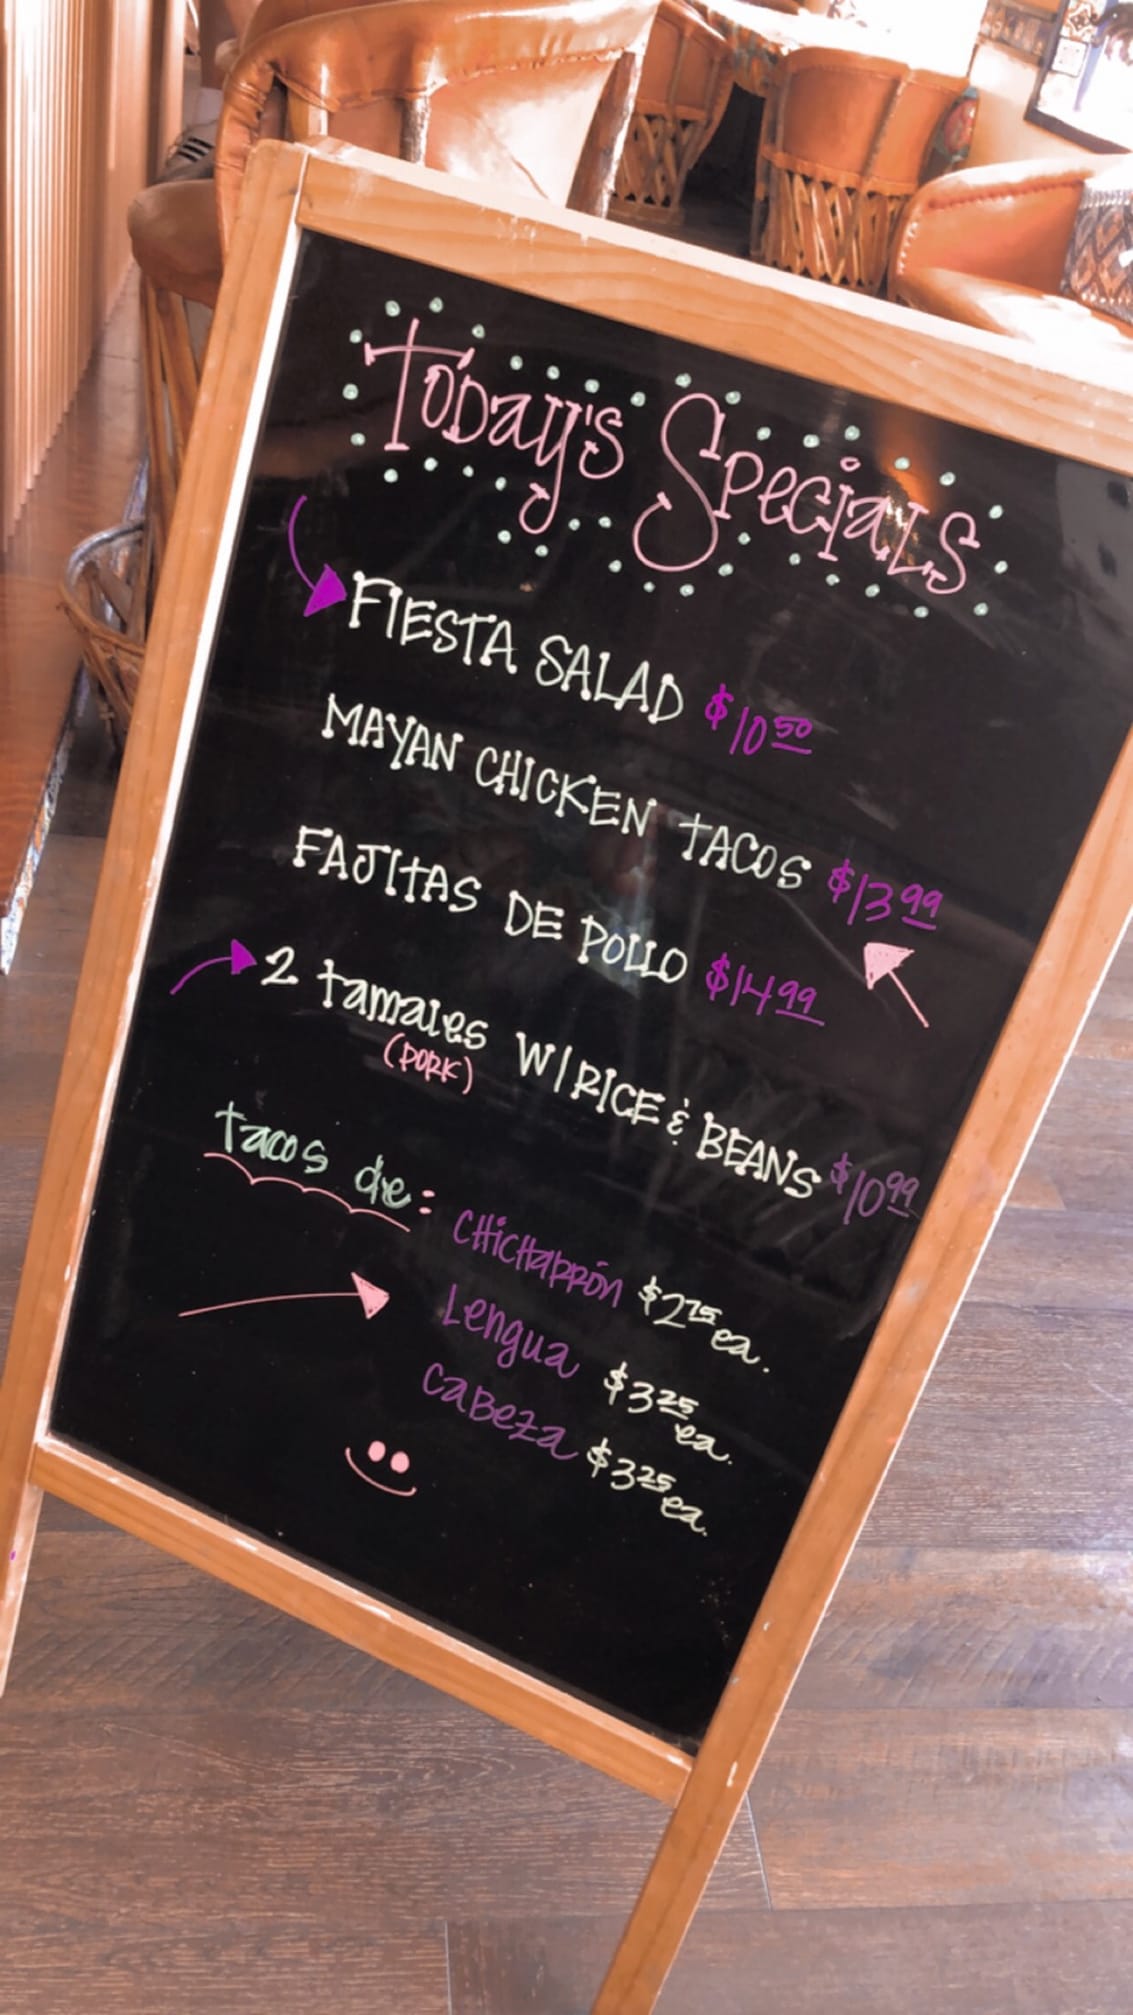 Today's Specials
FIESTA SALAD $10.50
MAYAN CHICKEN TACOS $13.99
FAJITAS DE POLLO $14.99
2 tamales W/RICE & BEANS $10.99
(PORK)
tacos de: CHICHARRÓN $2.75 ea.
Lengua $3.25 ea.
CABEZA $3.25 ea.